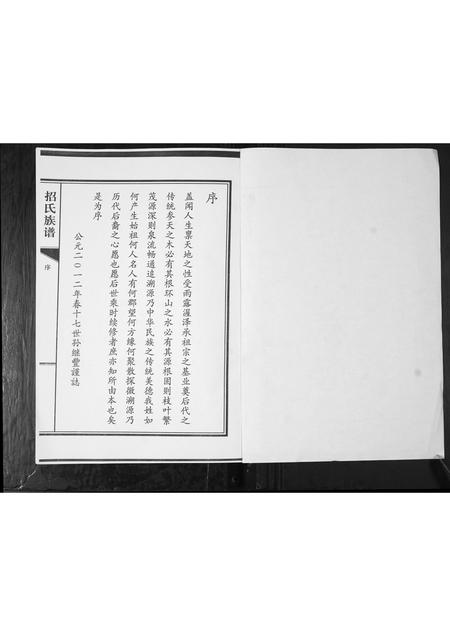 序
盖闻人生禀天地之性受雨露渥泽承祖宗之基业奠后代之
传统参天之木必有其根环山之水必有其源根固则枝叶繁
茂源深则泉流畅通追溯源乃中华民族之传统美德我姓如
何产生始祖何人名人有何郡望何方缘何聚散探微溯源乃
历代后裔之心愿也愿后世乘时续修者庶亦知所由本也矣
是为序
公元二〇一二年春十七世孙继豐谨誌
招氏族谱
序